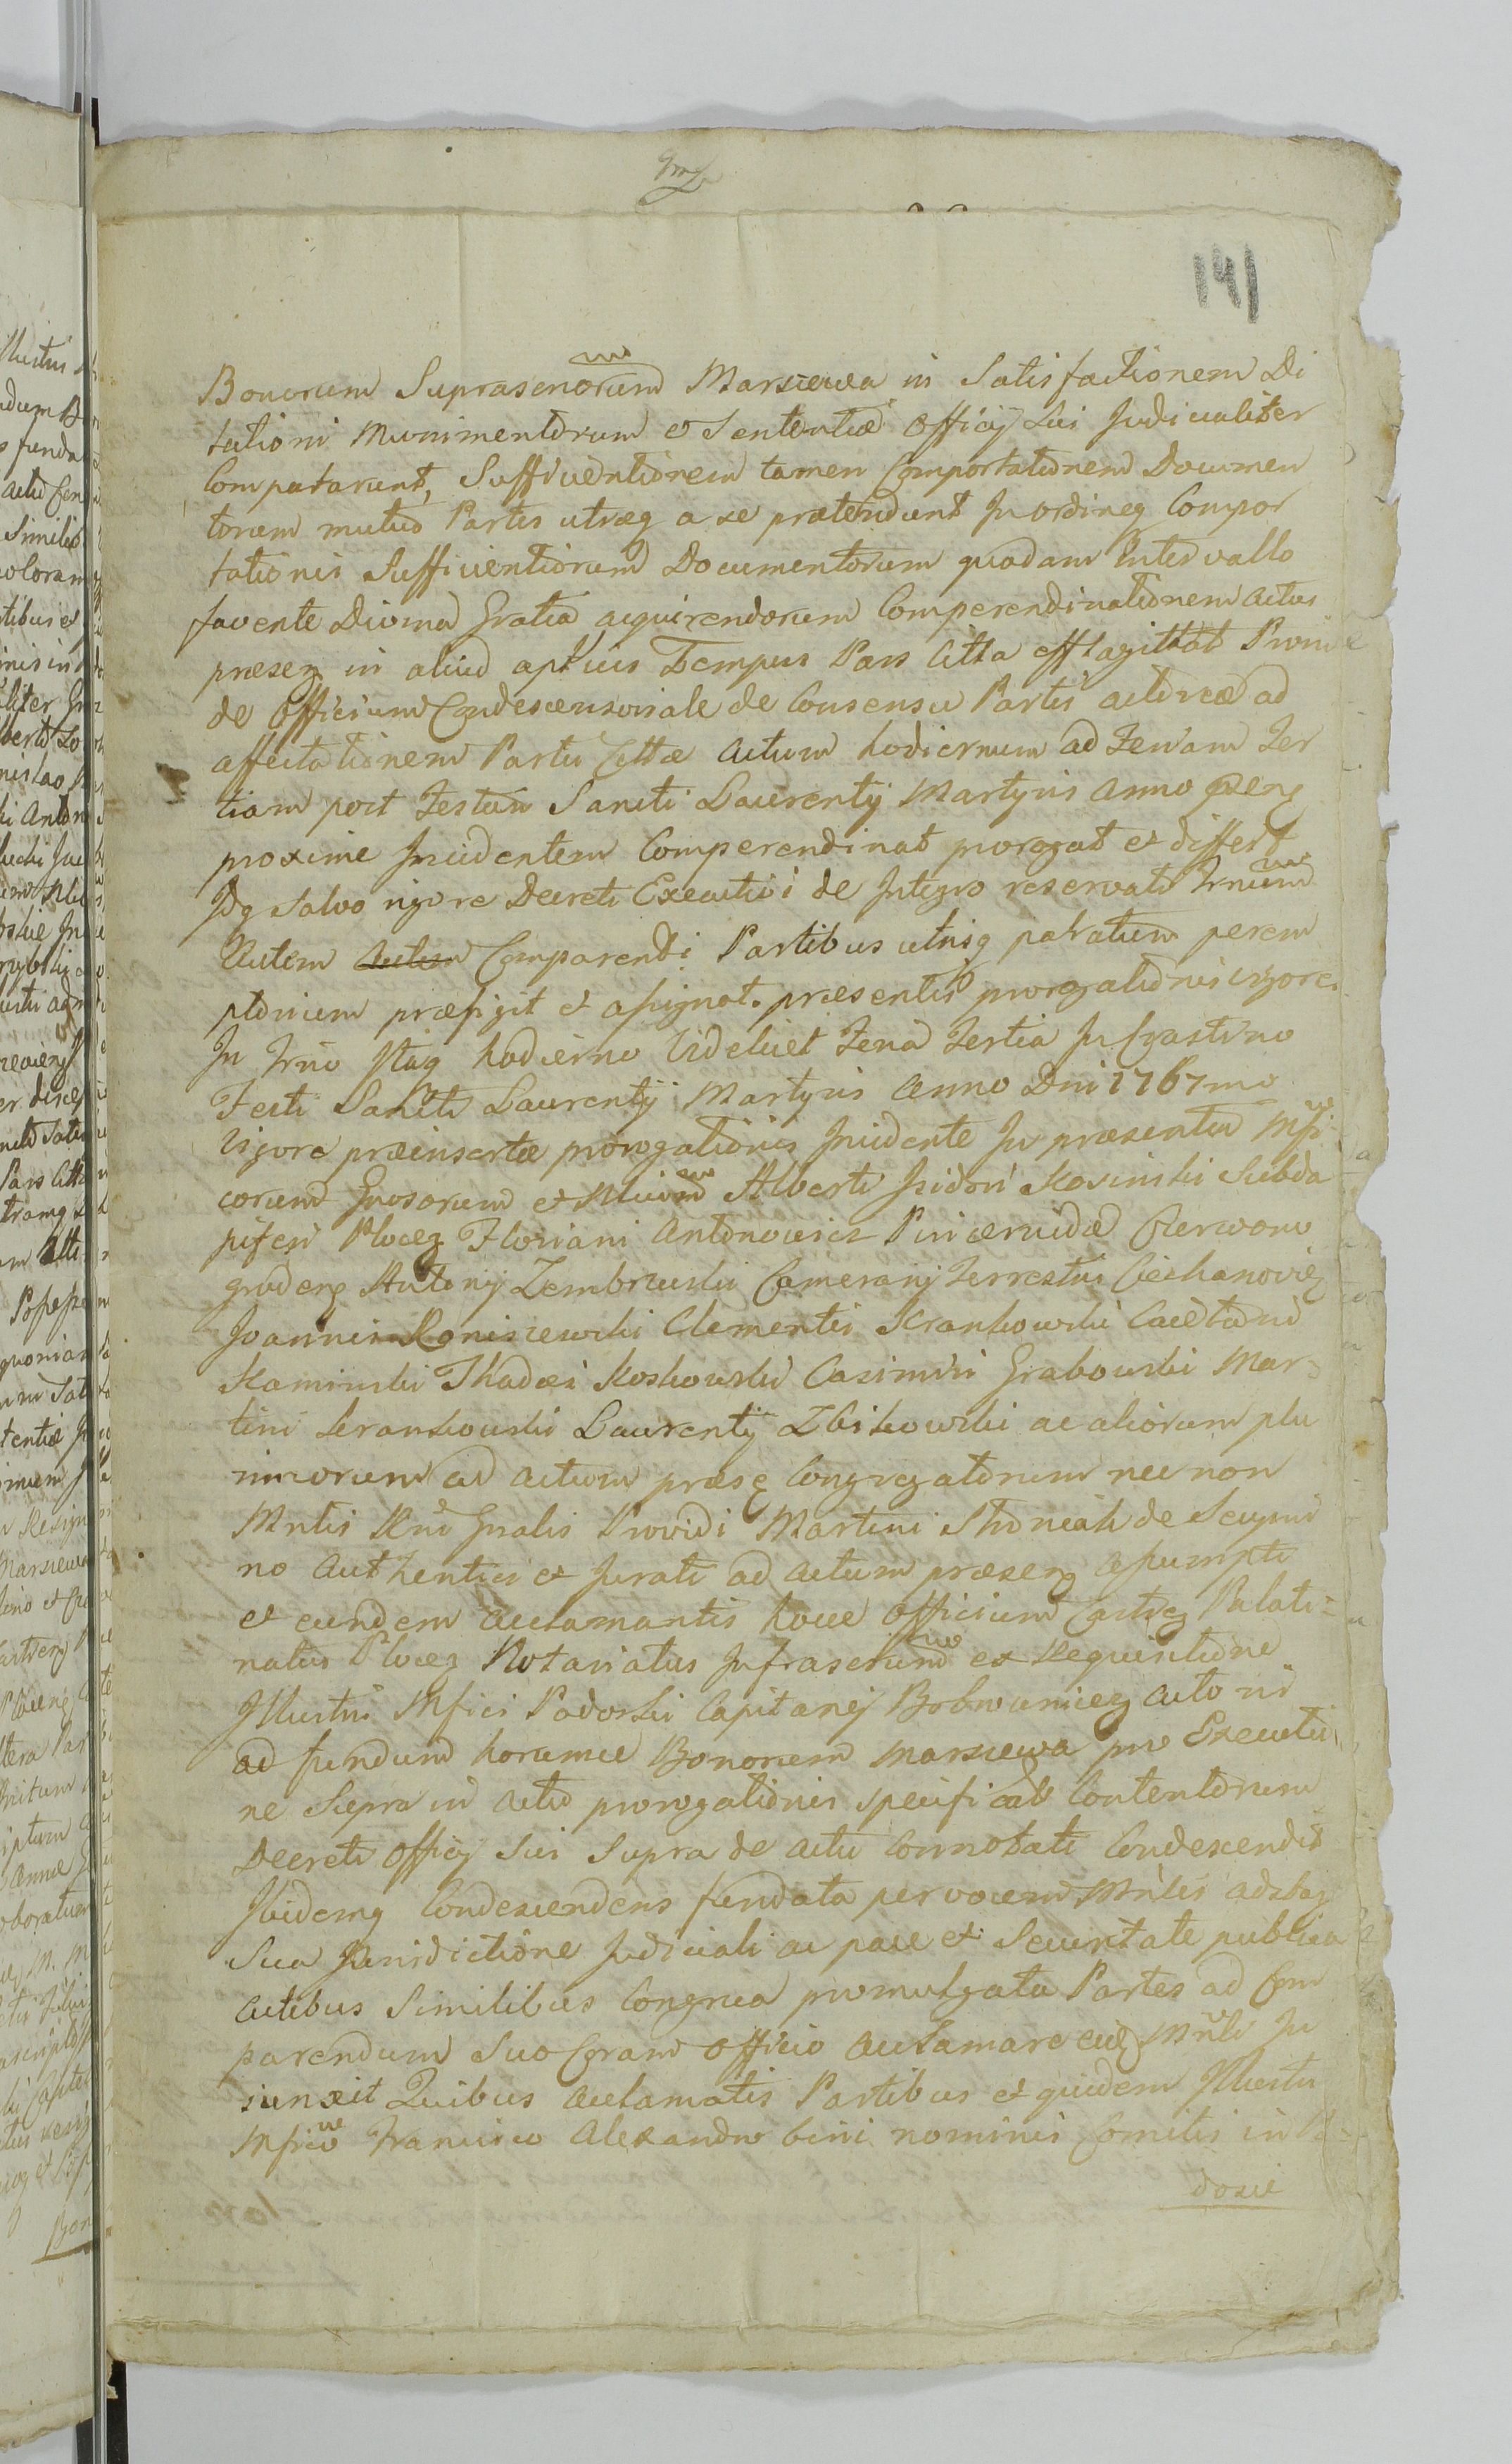 141
Bonorum Suprascriorum Marszewa in Satisfactionem Di
tationi Munimentorum et Sententiæ Officij Sui Judicialiter
Compararunt, Sufficientiorem tamen Comportationem Documen
torum mutuo Partes utræq a se prætendunt In ordineq Compor
tationis Sufficientiorum Documentorum quodam Intervallo
favente Divina Gratia acquirendorum Comperendinationem actus
præseq in aliud aptius Tempus Pars Citta efflagittat Proin
de Officium Condescensoriale de Consensu Partis actoreæ ad
affectationem Partis Cittæ actum hodiernum ad Feriam Ter
tiam post Festum Sancti Laurentij Martyris Anno
proxime Incidentem Comperendinat prorogat et differt
Idq Salvo rigore Decreti Executivi de Integro reservato Trnum
Autem Autem Comparendi Partibus utrisq paratum perem
ptorium præfigit et assignat. præsentis prorogationis vigore.
In Trno Itaq hodierno Videlicet Feria Tertia In Crastino
Festi Sancti Laurentij Martyris Anno Dni 1767mo
Vigore præinsertæ prorogationis Incidente In præsentia Mfi
corum Gnosorum et Nlium Alberti Isidori Kosinski Subda
piferi Ploceq Floriani Antonowicz Pincernidæ Czerwono
grodeng Antonij Zembrzuski Camerarij Terrestris Ciechanovieq
Joannis Koniszewski Clementis Krankowski Caietani
Kaminski Thadæi Koskowski Casimiri Grabowski Mar=
tini Krankowski Laurentij Zbikowski ac aliorum plu
rimorum ad actum præseq Congregatorum nec non
Mntis Rni Gnalis Providi Martini de
no Authentici et Jurati ad actum præseq assumpti
et eundem acclamantis hocce Officium Castreq Palati=
natus Ploceq Notariatus Infrascrium ex Requisitione
Illustris Mfici Podoski Capitanej Bobrowniceq actoris
ad fundum horumce Bonorum Marszewa pro Executio
ne Supra in actu prorogationis specificati Contentorum
Decreti Officij Sui Supra de actu Connotati Condescendit
Ibidemq Condescendens fundata per vocem Mntis adstaq
Sua Jurisdictione Judiciali ac pace et Securitate publica
actibus Similibus Congrua promulgata Partes ad Com
parendum Suo Coram Officio acclamare eiq Mnti In
iunxit Quibus acclamatis Partibus et quidem Illustri
Mfico Francisco Alexandro bini nominis Comitis in
dosie